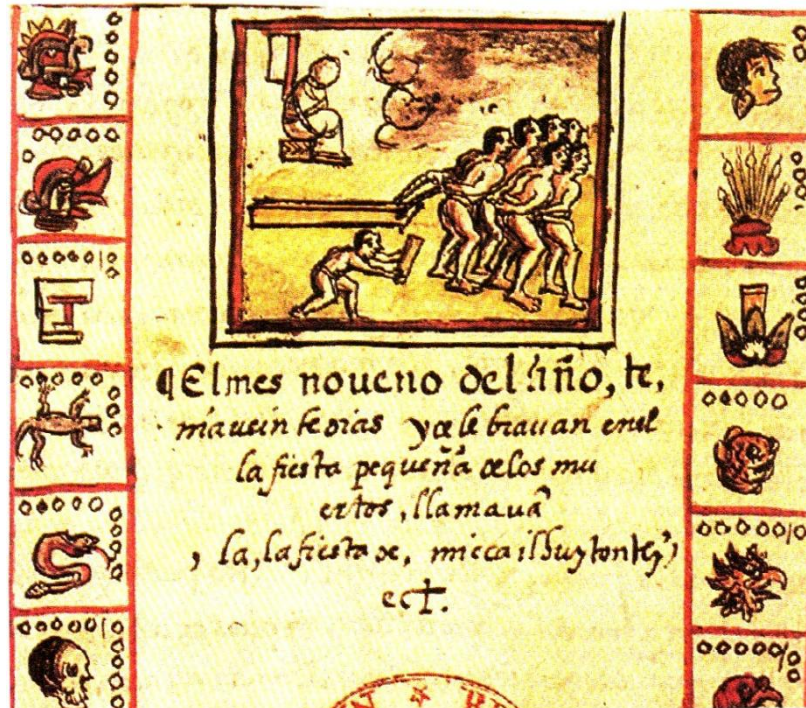 ¶ El mes noueno del año, te,
nia uein te dias y çe le brauan enel
la fiesta pequeña de los mu
ertos, llamauã
, la, la fiesta de, micca ilhuytontly,
ect.